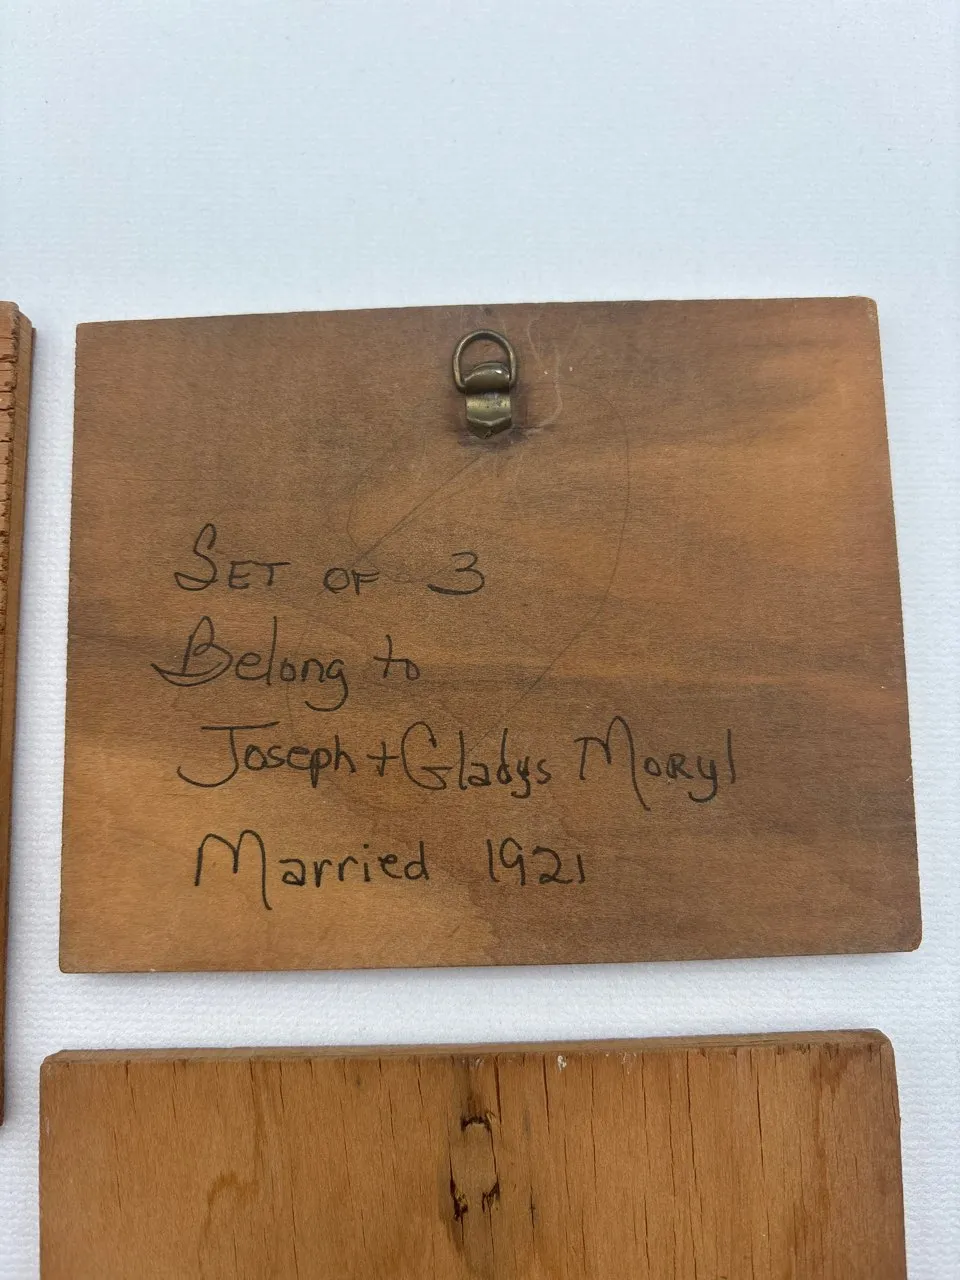 SET OF 3
Belong to
Joseph + Gladys Moryl
Married 1921